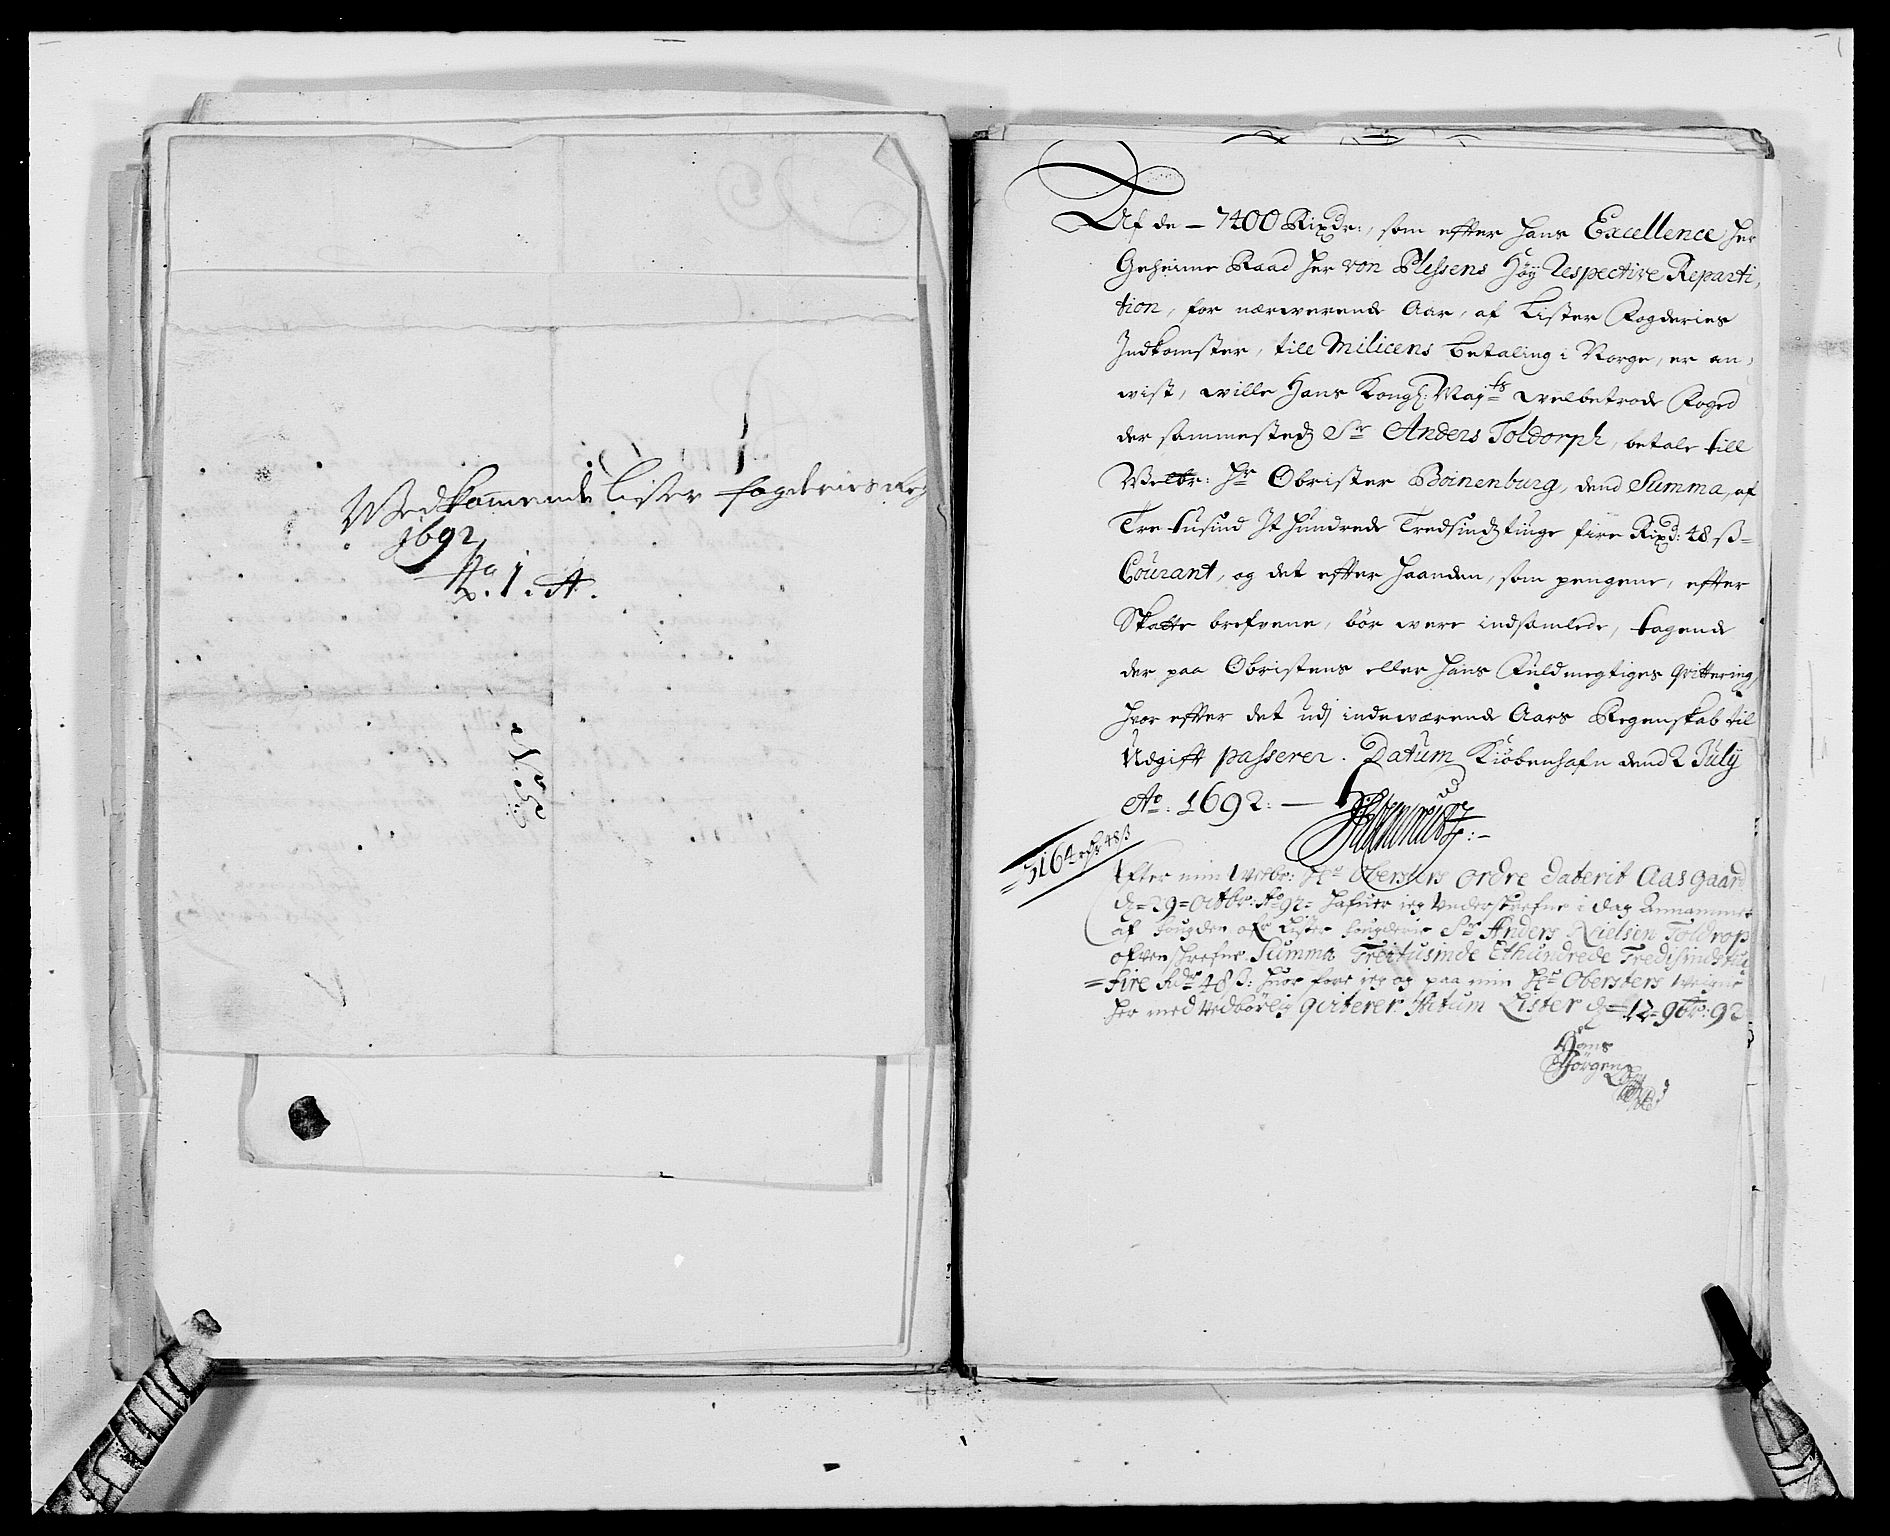 Wedkommende Lister fogderies Reg
1692
No. 1. A.
Af de – 7400 Rixdr:, som effter Hans Excellence Her
Geheime Raad Her von Plessens Høy Respective Reparti,
tion, for nærwerende Aar, af Lister Fogderies
Indkomster, till Milicens betaling i Norge, er an,
wist, wille Hans Kongl: Mayts welbetrode Foged
der sammestedz Sr Anders Toldorph, betale till
Welbr: Hr Obrister Boinenburg, dend Summa, af
Tre tusind It Hundrede Tredsindztiuge fire Rixd: 48 ß
Courant, og det effter Haanden, som pengene, effter
Skatte brefvene, bør were indsamlede, tagende
der paa Obristens eller Hans Fuldmegtiges qvittering,
Hvor effter det udj indewærende Aars Regenskab til
Udgifft passerer. Datum Kiøbenhafn dend 2 July
Ao. 1692: —
3164 rdr 48 ß
Effter min Welbr: Hr Obersters Ordre Daterit Aasgaard
d. 29 Octbr: Ao 92 Hafuer ieg Underskrefne i dag Annammet
af fougden ofr Lister fougderie Sr Anders Nielsen Toldrop
ofven schrefne Summa Treitusinde Ethundrede Tredisindstiu
fire Rdr 48 ß: Huor fore ieg og paa min Hr Obersters Weigne
Her med Vedbørlig qviterer. Actum Lister d. 12 9br: 92
Hans
Jørgen